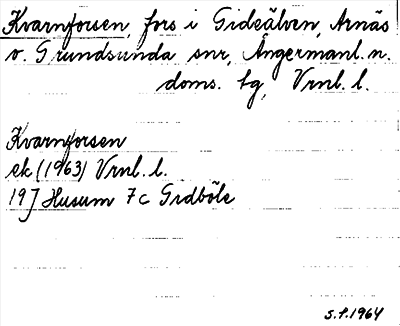 Kvarnforsen, fors i Gideälven, Arnäs
o. Grundsunda snr, Ångermanl. n.
doms. tg, Vrnl. l.
Kvarnforsen
ek (1963) Vrnl. l.
19J Husum 7c Gidböle
S.P. 1964